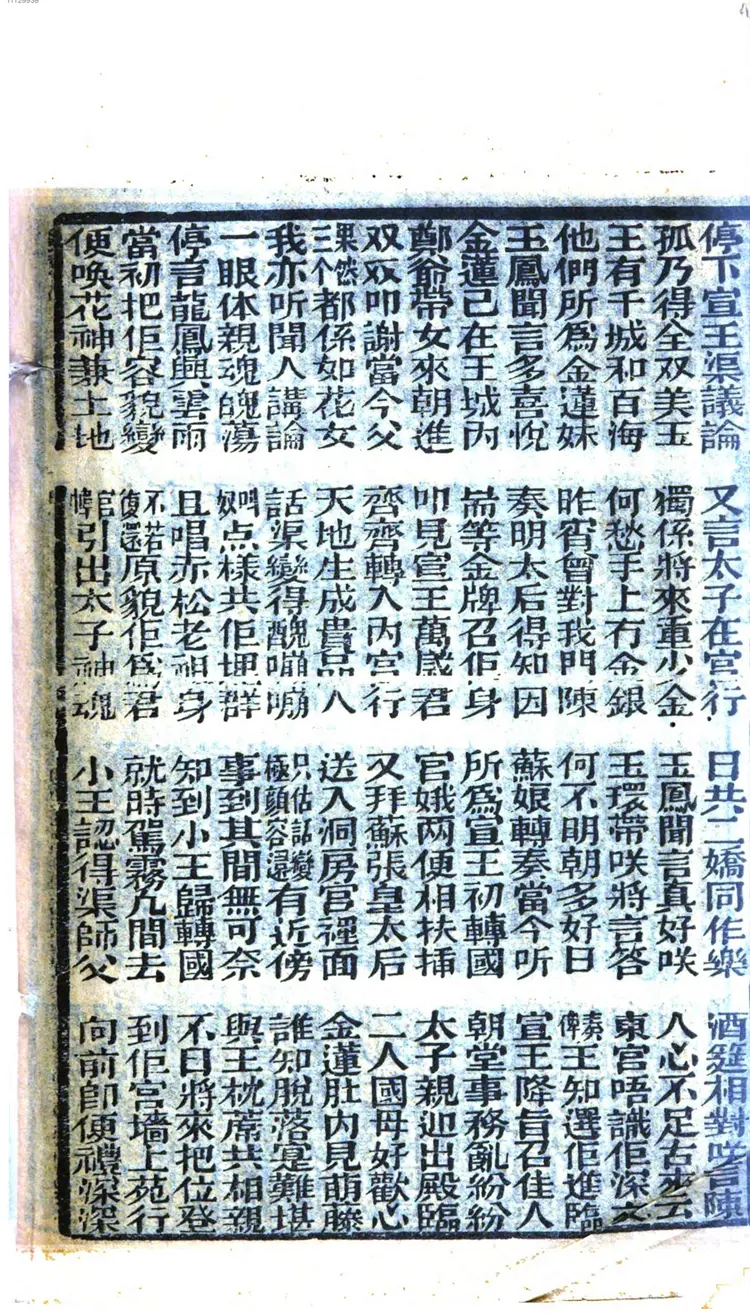 停下宣王渠議論 又言太子在宮行 日共二嬌同作樂 酒筵相對咲言陳
孤乃得全双美玉 獨係將來重少金 玉鳳聞言真好咲 人心不足古來云
王有千城和百海 何愁手上冇金銀 玉環帶咲將言答 東宮唔識佢深文
他們所為金蓮妹 昨宵曾對我門陳 何不明朝多好日 奏俾王知選佢進臨
玉鳳聞言多喜悅 奏明太后得知因 蘇娘轉奏當今听 宣王降旨召佳人
金蓮己在王城內 耑等金牌召佢身 所為宣王初轉國 朝堂事務亂紛紛
鄭爺帶女來朝進 叩見宣王萬歲君 官娥两便相扶插 太子親迎出殿臨
双双叩謝當今父 齊齊轉入內宮行 又拜蘇張皇太后 二人國母好歡心
果然三个都係如花女 天地生成貴品人 送入洞房官裡面 金蓮肚內見萌藤
我亦听聞人講論 話渠變得醜嘣嘣 只估話變極顏容還有近傍 誰知脫落寔難堪
一眼体親魂魄蕩 叫奴点樣共佢埋群 事到其間無可奈 與王枕蓆共相親
停言龍鳳興雲雨 且唱赤松老祖身 知到小王歸轉國 不日將來把位登
當初把佢容貌變 不若復還原貌佢為君 就時駕霧九間去 到佢宮墙上苑行
便喚花神兼土地 引出太子神魂 小王認得渠師父 向前即便禮深深